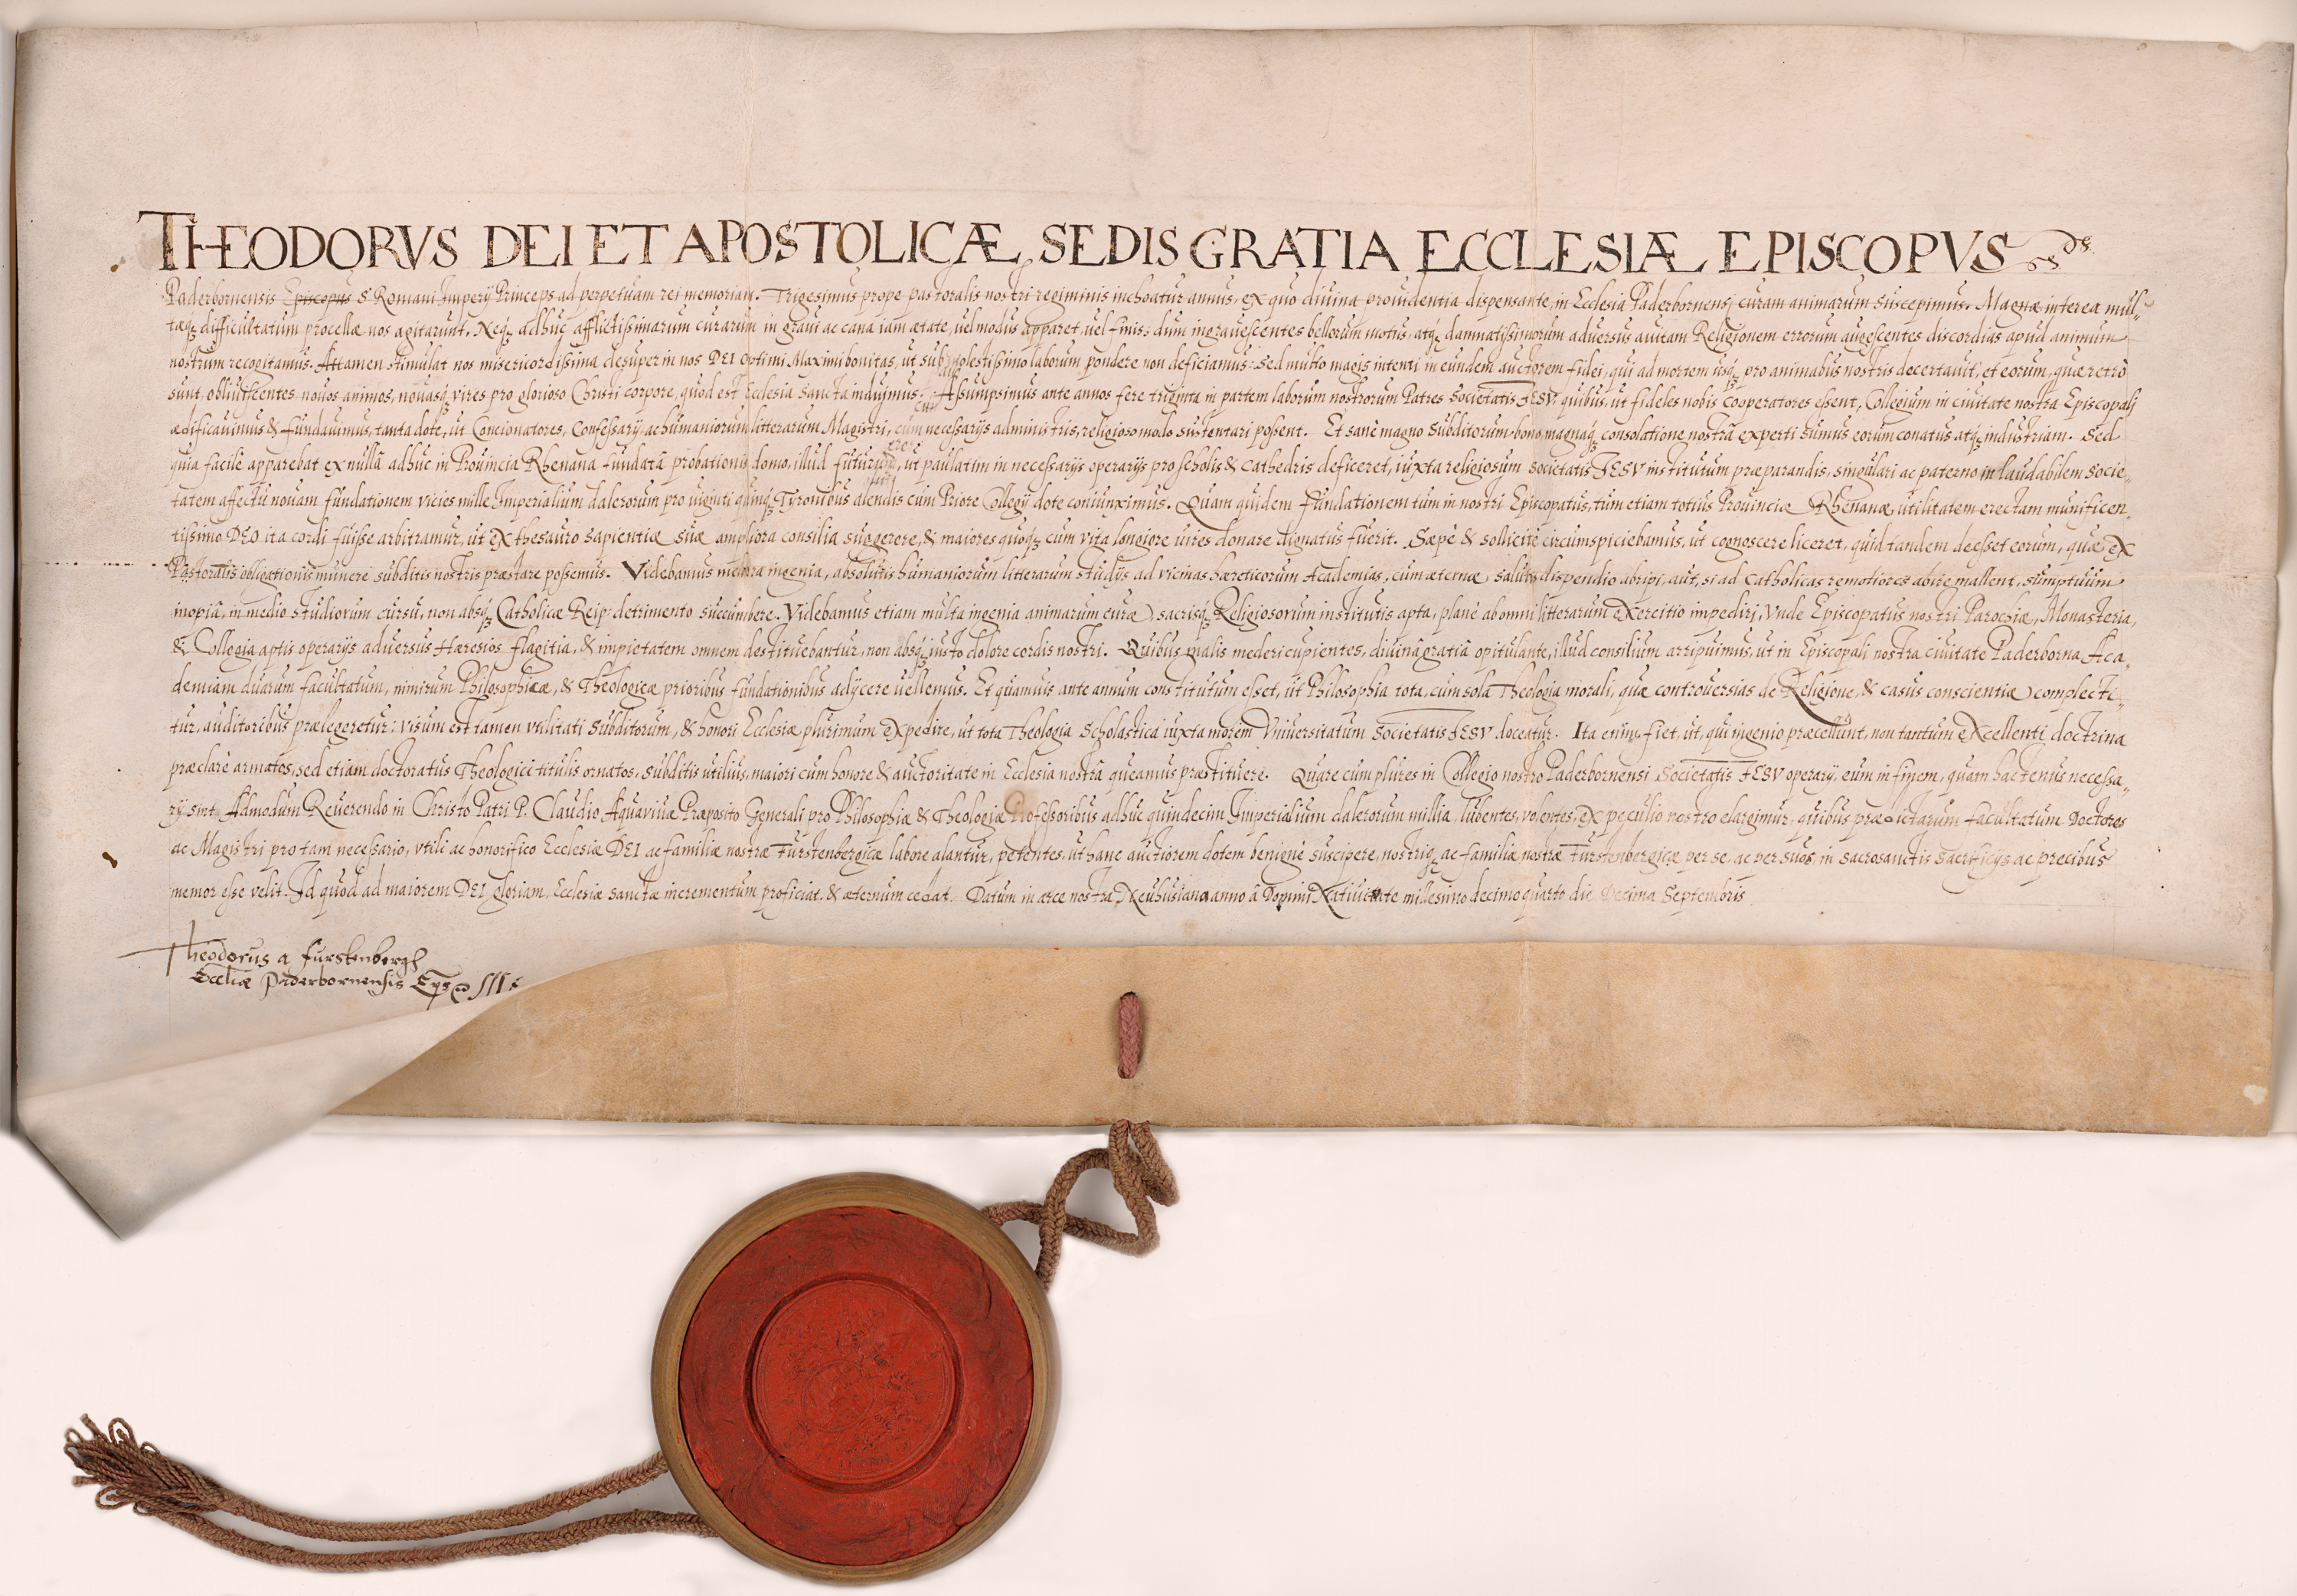 THEODORVS DEI ET APOSTOLICÆ SEDIS GRATIA ECCLESIÆ EPISCOPVS
Paderbornensis Episcopus S. Romani Imperij Princeps ad perpetuam rei memoriam. Trigesimus prope pastoralis nostri regiminis inchoatur annus, ex quo diuina prouidentia dispensante, in Ecclesia Paderbornensj curam animarum suscepimus. Magnæ interea mul-
tæq; difficultatum procellæ nos agitarunt. Neq; adhuc afflictissimarum curarum in graui ac cana iam ætate, uel modus apparet, uel finis: dum ingrauescentes bellorum motus, atq; damnatissimorum aduersus auitam Religionem errorum augescentes discordias apud animum
nostrum recogitamus. Attamen stimulat nos misericordissima desuper in nos DEI Optimi Maximi bonitas, ut sub molestissimo laborum pondere non deficiamus: sed multo magis intenti in eundem auctorem fidei, qui ad mortem usq; pro animabus nostris decertauit, et eorum, quæ retrò
sunt obliuiscentes nouos animos, nouasq; vires pro glorioso Christi corpore, quod est Ecclesia sancta induimus. Assumpsimus ante annos fere triginta in partem laborum nostrorum Patres Societatis IESV, quibus, ut fideles nobis cooperatores essent, Collegium in ciuitate nostra Episcopalj
ædificauimus & fundauimus, tanta dote, ut Concionatores, Confessarij, ac humaniorum litterarum Magistri, cum necessarijs administris, religioso modo sustentari possent. Et sanè magno subditorum bono, magnaq; consolatione nostrâ experti sumus eorum conatus atq; industriam. Sed
quia facilè apparebat ex nullâ adhuc in Prouincia Rhenana fundatâ probationis domo, illud futurum, ut paulatim in necessarijs operarijs pro scholis & cathedris deficeret, iuxta religiosum Societatis IESV institutum præparandis, singulari ac paterno in laudabilem Socie-
tatem affectu nouam fundationem vicies mille Imperialium dalerorum pro uiginti quinq; Tyronibus alendis cum Priore Collegij dote coniunximus. Quam quidem fundationem tum in nostri Episcopatus, tum etiam totius Prouinciæ Rhenanæ utilitatem erectam munificen-
tissimo DEO ita cordi fuisse arbitramur, ut ex thesauro sapientiæ suæ ampliora consilia suggerere, & maiores quoq; cum vita longiore uires donare dignatus fuerit. Sæpè & sollicitè circumspiciebamus, ut cognoscere liceret, quid tandem deesset eorum, quæ ex
Pastoralis obligationis munere subditis nostris præstare possemus. Videbamus meliora ingenia, absolutis humaniorum litterarum studijs ad vicinas hæreticorum Academias, cum æternæ salutis dispendio abripi, aut, si ad Catholicas remotiores abire mallent, sumptuum
inopiâ, in medio studiorum cursu, non absq; Catholicæ Reip: detrimento succumbere. Videbamus etiam multa ingenia animarum curæ, sacrisq; Religiosorum institutis apta, planè ab omni litterarum exercitio impediri, Vnde Episcopatus nostri Parochiæ, Monasteria,
& Collegia aptis operarijs aduersus Hæresios flagitia, & impietatem omnem destituebantur, non absq; iusto dolore cordis nostri. Quibus malis mederi cupientes, diuinâ gratiâ opitulante, illud consilium arripuimus, ut in Episcopali nostra ciuitate Paderborna Aca-
demiam duarum facultatum, nimirum Philosophicæ, & Theologicæ prioribus fundationibus adijcere uellemus. Et quamuis ante annum constitutum esset, ut Philosophia tota, cum sola Theologia morali, quæ controuersias de Religione, & casus conscientiæ complecti-
tur, auditoribus prælegeretur: visum est tamen vtilitati subditorum, & honori Ecclesiæ plurimum expedire, ut tota Theologia Scholastica iuxta morem Vniuersitatum Societatis IESV doceatur. Ita enim fiet, ut, qui ingenio præcellunt, non tantum excellenti doctrina
præclarè armatos, sed etiam doctoratus Theologici titulis ornatos, subditis utilius, maiori cum honore & auctoritate in Ecclesia nostrâ queamus præstituere. Quare cum plures in Collegio nostro Paderbornensi Societatis IESV operarij, eum in finem, quam hactenus necessa-
rij sint. Admodum Reuerendo in Christo Patri P. Claudio Aquauiuæ Præposito Generali pro Philosophiæ & Theologiæ Professoribus adhuc quindecim Imperialium dalerorum millia, lubentes, volentes, ex peculio nostro elargimur, quibus prædictarum facultatum Doctores
ac Magistri pro tam necessario, vtili ac honorifico Ecclesiæ DEI ac familiæ nostræ Furstenbergicæ labore alantur, petentes, ut hanc auctiorem dotem benignè suscipere, nostriq; ac familiæ nostræ Furstenbergicæ per se, ac per suos, in sacrosanctis sacrificijs ac precibus
memor esse velit. Id quod ad maiorem DEI gloriam, Ecclesiæ sanctæ incrementum proficiat, & æternum cedat. Datum in arce nostra Neuhusiana anno â Domini Natiuitate millesimo decimo quarto die Decima Septembris
Theodorus a furstenbergh
Eccliæ Paderbornensis Eps